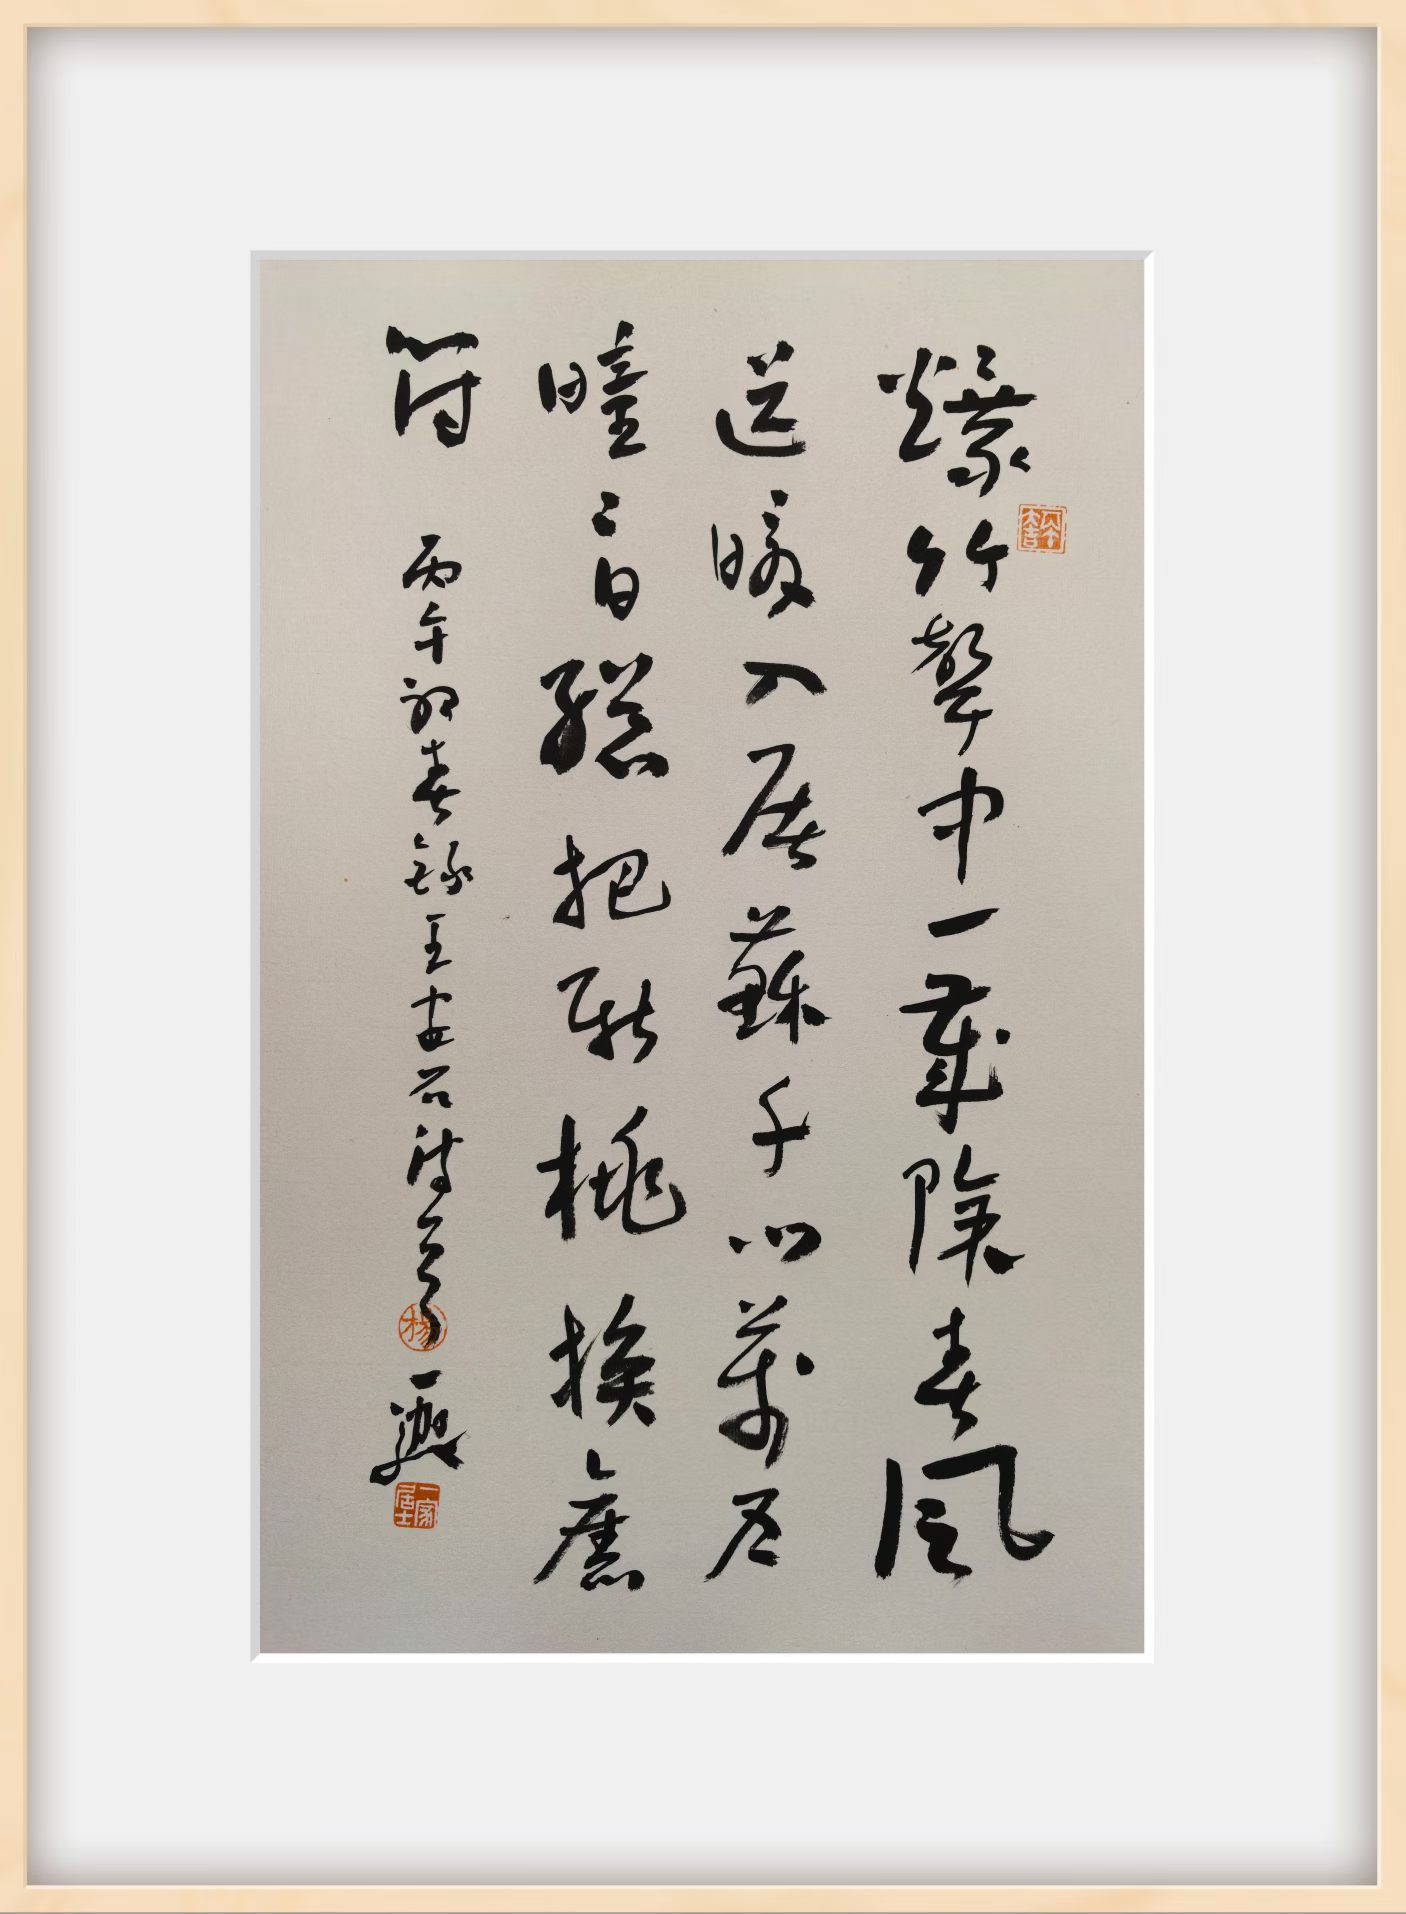 爆竹聲中一歲除春風
送暖入屠蘇千門萬戶
曈々日總把新桃換舊
符 丙午初春錄王安石詩 一
平安大吉
楊
一家居士